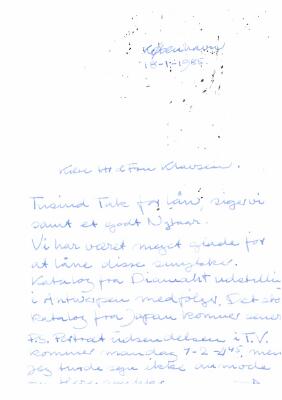 København
18-1-1985.
Kære Hr & Fru Klavsen.
Tusind Tak for lån, siger vi
samt et godt Nytaar.
Vi har været meget glade for
at låne disse smykker.
Katalog fra Diamant udstilli
i Antwerpen medfølger. Det sto
Katalog fra Japan kommer sener
P.S. Portræt udsendelsen i T.V.
kommer mandag 7-2- men
Jeg turde ikke